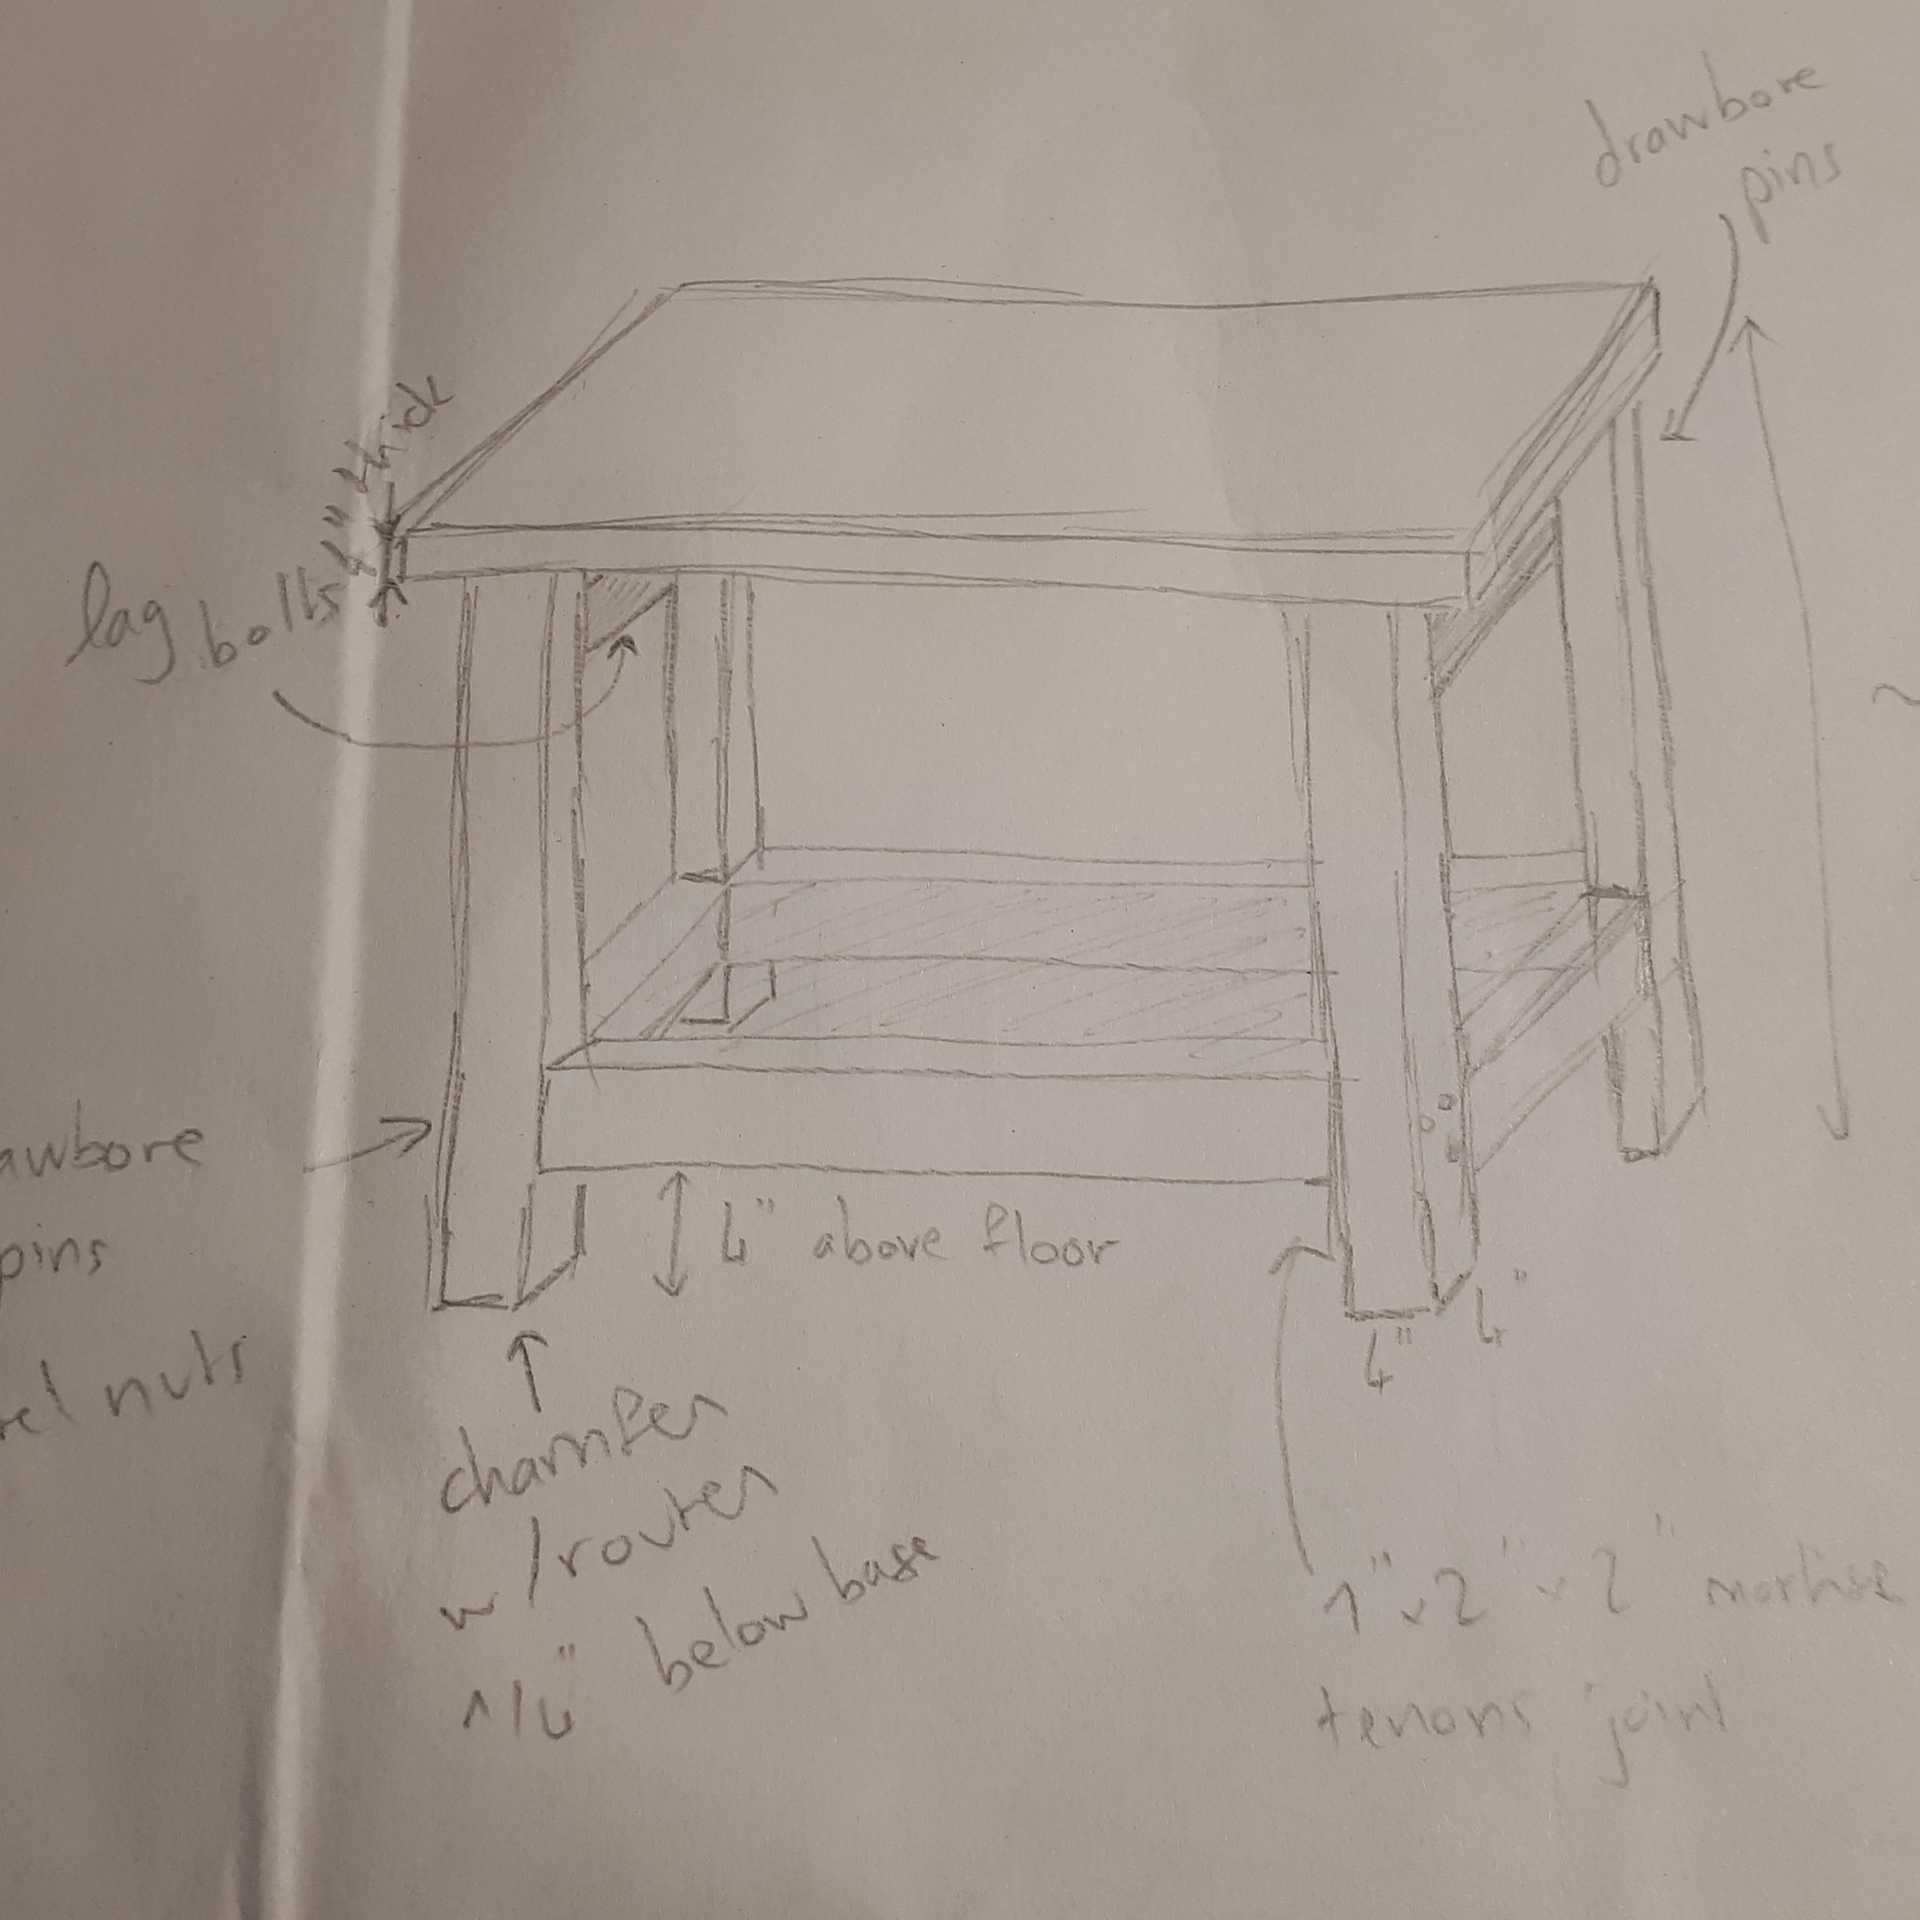 drawbore
pins
4" thick
lag bolts
awbore
pins
el nuts
4" above floor
4"
4"
chamfer
w/router
1/4" below base
1" x 2" x 2" mortise
tenons joint